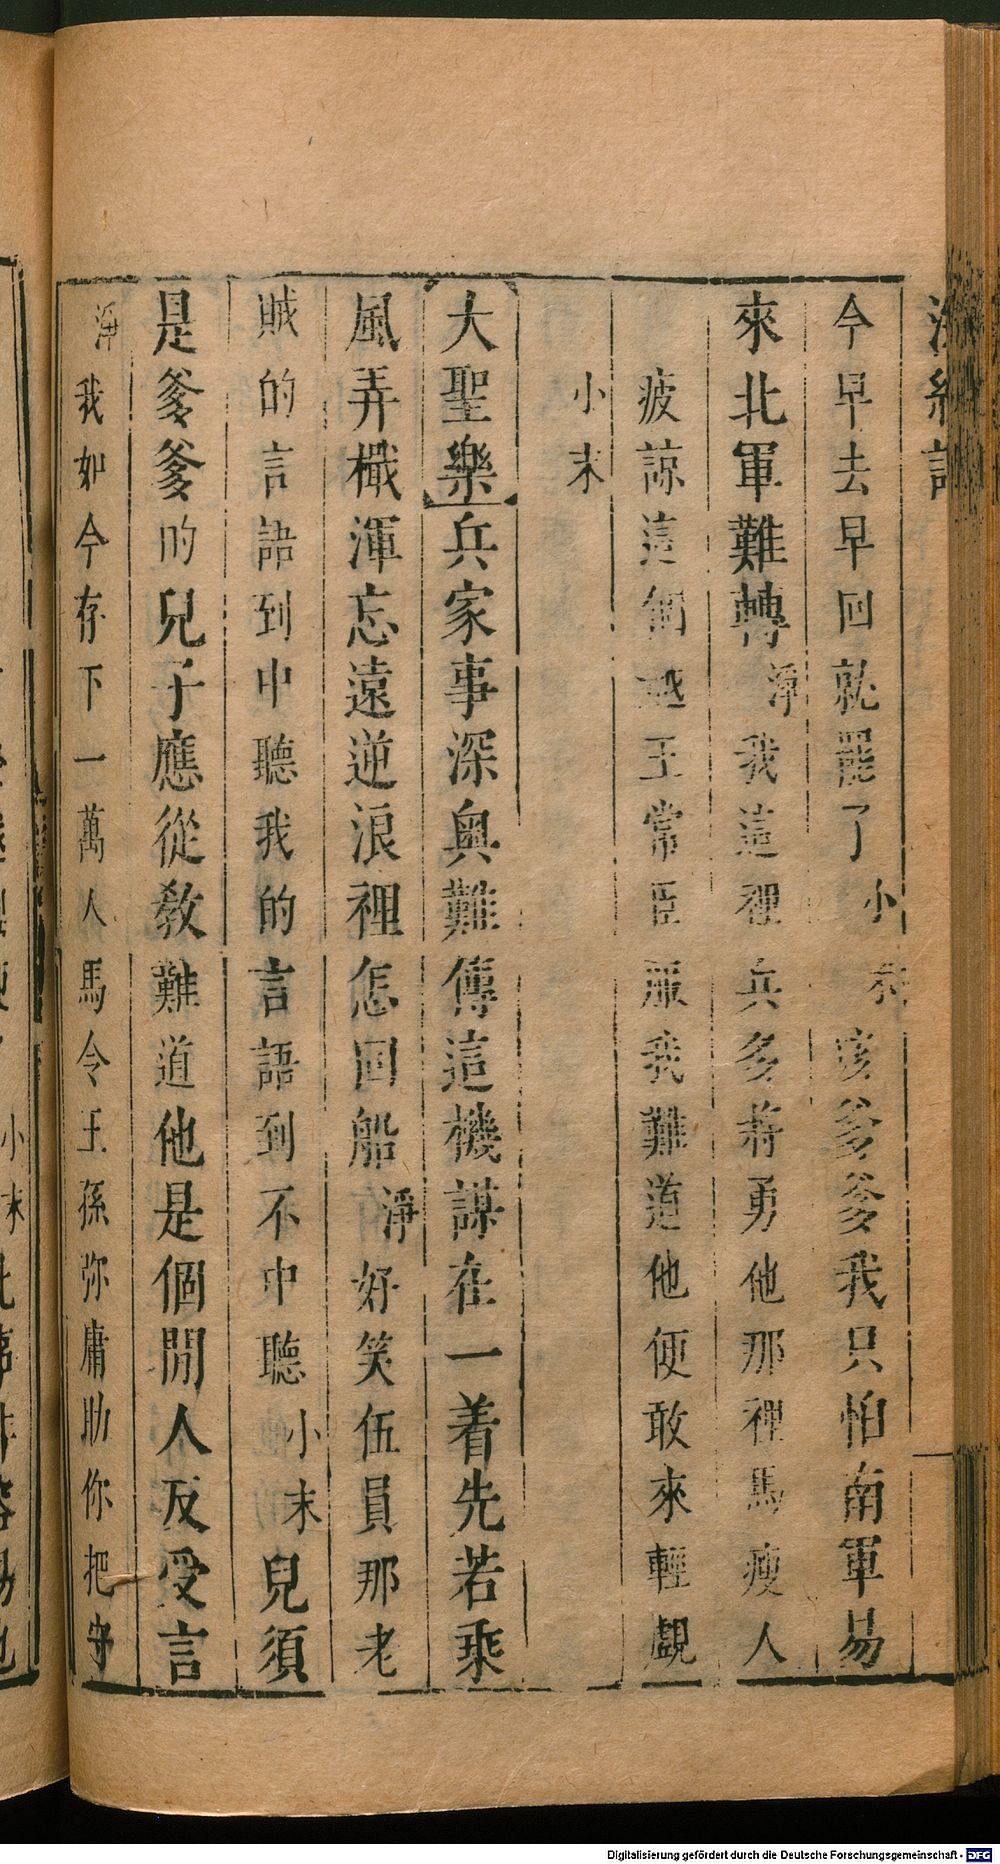 今早去早回就罷了小末咳爹爹我只怕南軍易
來北軍難轉淨我這裡兵多將勇他那裡馬瘦人
疲諒這個越王常臣服我難道他便敢來輕覷
小末
大聖樂兵家事深奥難傳這機謀在一着先若乘
風弄檝渾忘遠逆浪裡怎回船淨好笑伍員那老
賊的言語到中聽我的言語到不中聽小末兒須
是爹爹的兒子應從教難道他是個閒人反受言
淨我如今存下一萬人馬令王孫弥庸助你把守
Digitalisierung gefördert durch die Deutsche Forschungsgemeinschaft - DFG